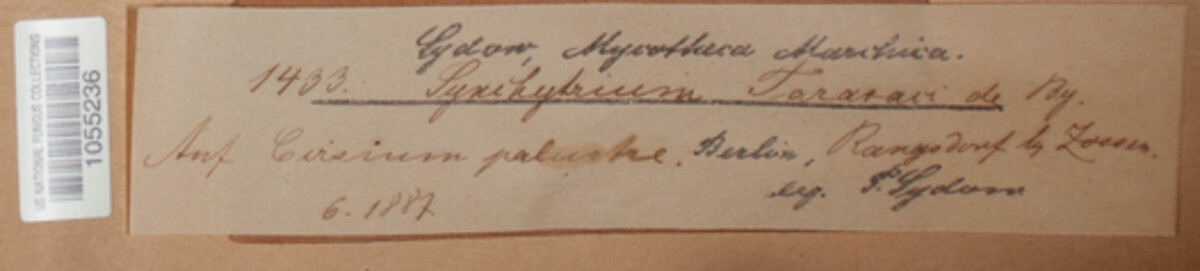 US NATIONAL FUNGUS COLLECTIONS
1055236
Sydow, Mycotheca Marchica.
1433. Synchytrium Taraxaci de By.
Auf Cirsium palustre. Berlin, Rangsdorf b Zossen.
leg. P. Sydow
6. 1887